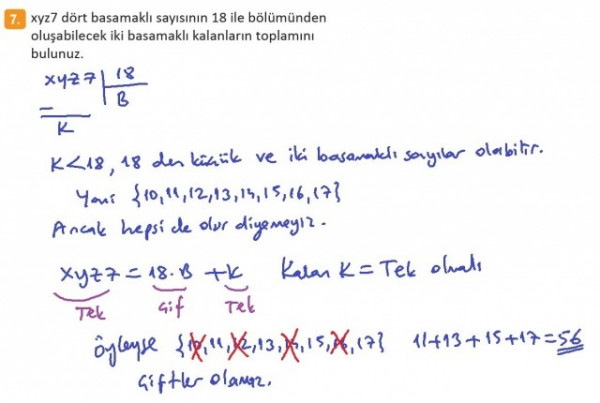 7. xyz7 dört basamaklı sayısının 18 ile bölümünden
oluşabilecek iki basamaklı kalanların toplamını
bulunuz.
xyz7 | 18
B
-
K
K<18, 18 den küçük ve iki basamaklı sayılar olabilir.
Yani {10,11,12,13,14,15,16,17}
Ancak hepsi de olur diyemeyiz.
xyz7 = 18.B + K Kalan K = Tek olmalı
Tek Çif Tek
Öyleyse {10,11,12,13,14,15,16,17} 11+13+15+17=56
Çiftler olamaz.